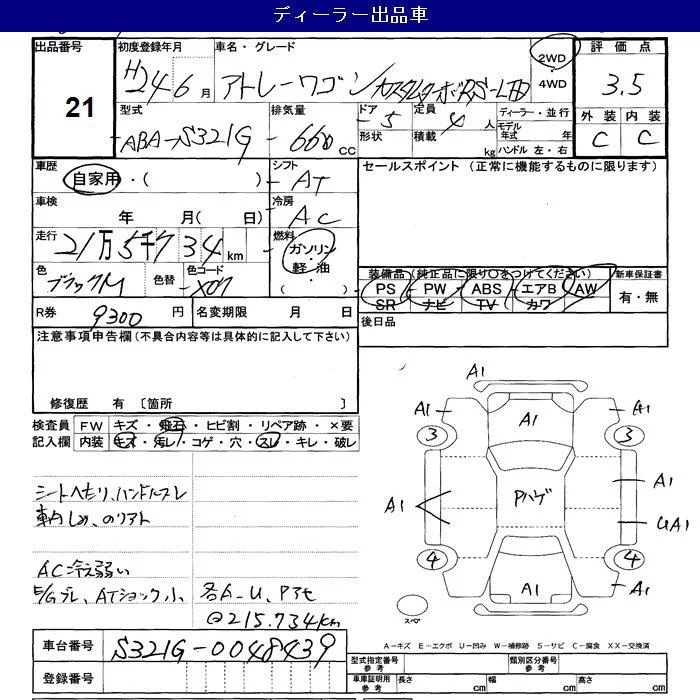 ディーラー出品車
出品番号 初度登録年月 車名・グレード 2WD 評価点
21 H24 6月 アトレーワゴン カスタムターボRS-LTD ・4WD 3.5
型式 排気量 ドア 定員 ディーラー・並行 外装 内装
ABA-S321G 660cc 5 4人 モデル年式 年 C C
形状 積載 kg ハンドル 左・右
車歴 シフト セールスポイント (正常に機能するものに限ります)
自家用・( ) AT
車検 冷房
年 月(日) AC
走行 燃料
21万5千734km ガソリン・軽油・( )
色 色替 色コード 装備品(純正品に限り○をつけてください) 新車保証書
ブラックM X07 PS PW ABS エアB AW 有・無
SR ナビ TV カワ
R券 9300円 名変期限 月 日 後日品
注意事項申告欄(不具合内容等は具体的に記入して下さい)
修復歴 有 〔箇所 〕
検査員記入欄 FW キズ・飛石・ヒビ割・リペア跡・×要
内装 キズ・汚レ・コゲ・穴・スレ・キレ・破レ
A1
A1 A1 A1
3 3
シートヘタリ、ハンドルスレ
A1 Pハゲ A1
UA1
AC冷え弱い
4 4
E/Gブレ、ATショック小、 各A-U、Pアセ
A1 A1
@215.734km
スペア
A-キズ E-エクボ U-凹み W-補修跡 S-サビ C-腐食 XX-交換済
車台番号 S321G-0048439
型式指定番号 参考 類別区分番号 参考
登録番号 車庫証明用 参考 長さ cm 幅 cm 高さ cm